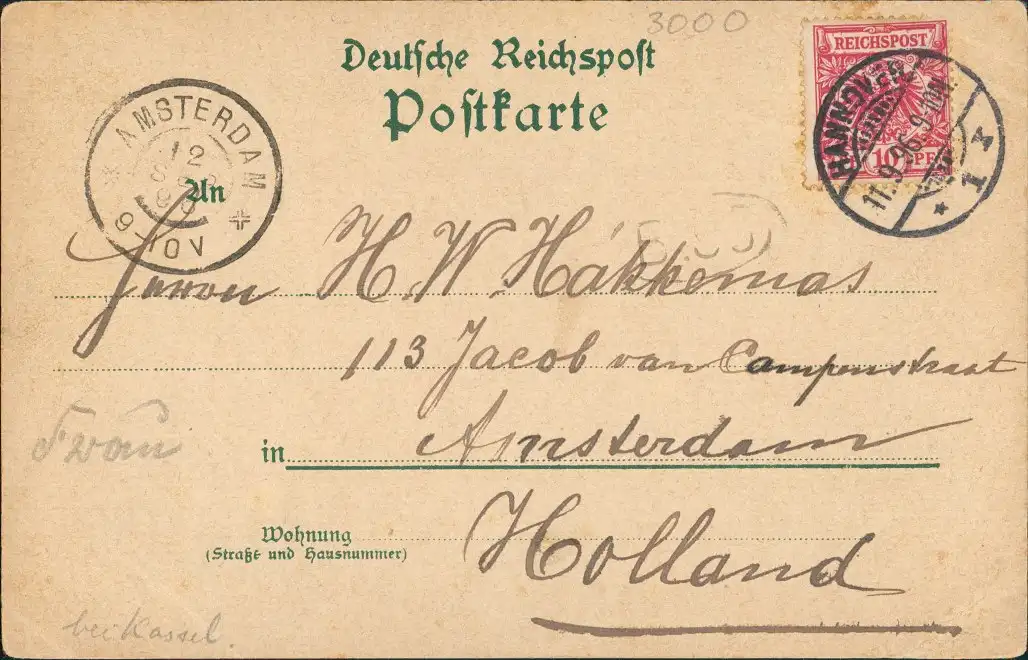 3000
Deutsche Reichspost
Postkarte
REICHSPOST
10 PF
HANNOVER
11.9.96.9-10N.
1 x
AMSTERDAM
12
9-10V
An
Herrn H. W Hakkemas
113 Jacob van Campenstraat
in Amsterdam
Wohnung
(Straße und Hausnummer)
Holland
bei Kassel.